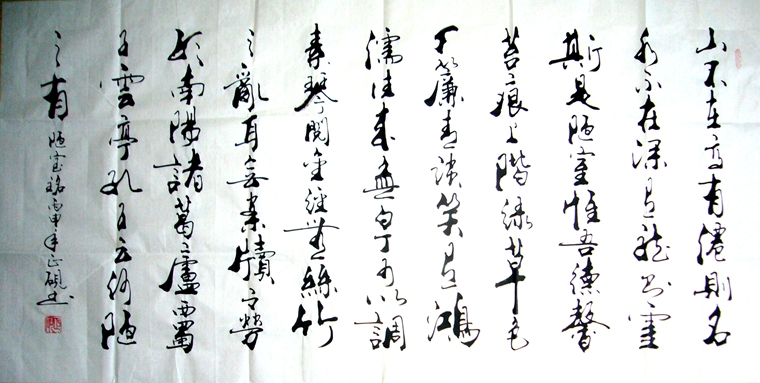 山不在高有僊則名
水不在深有龍則靈
斯是陋室惟吾德馨
苔痕上階緑草色
入簾青談笑有鴻
儒往来無白丁可以調
素琴閲金經無絲竹
之亂耳無案牘之勞
形南陽諸葛廬西蜀
子雲亭孔子云何陋
之有
陋室銘丙申年正硯书